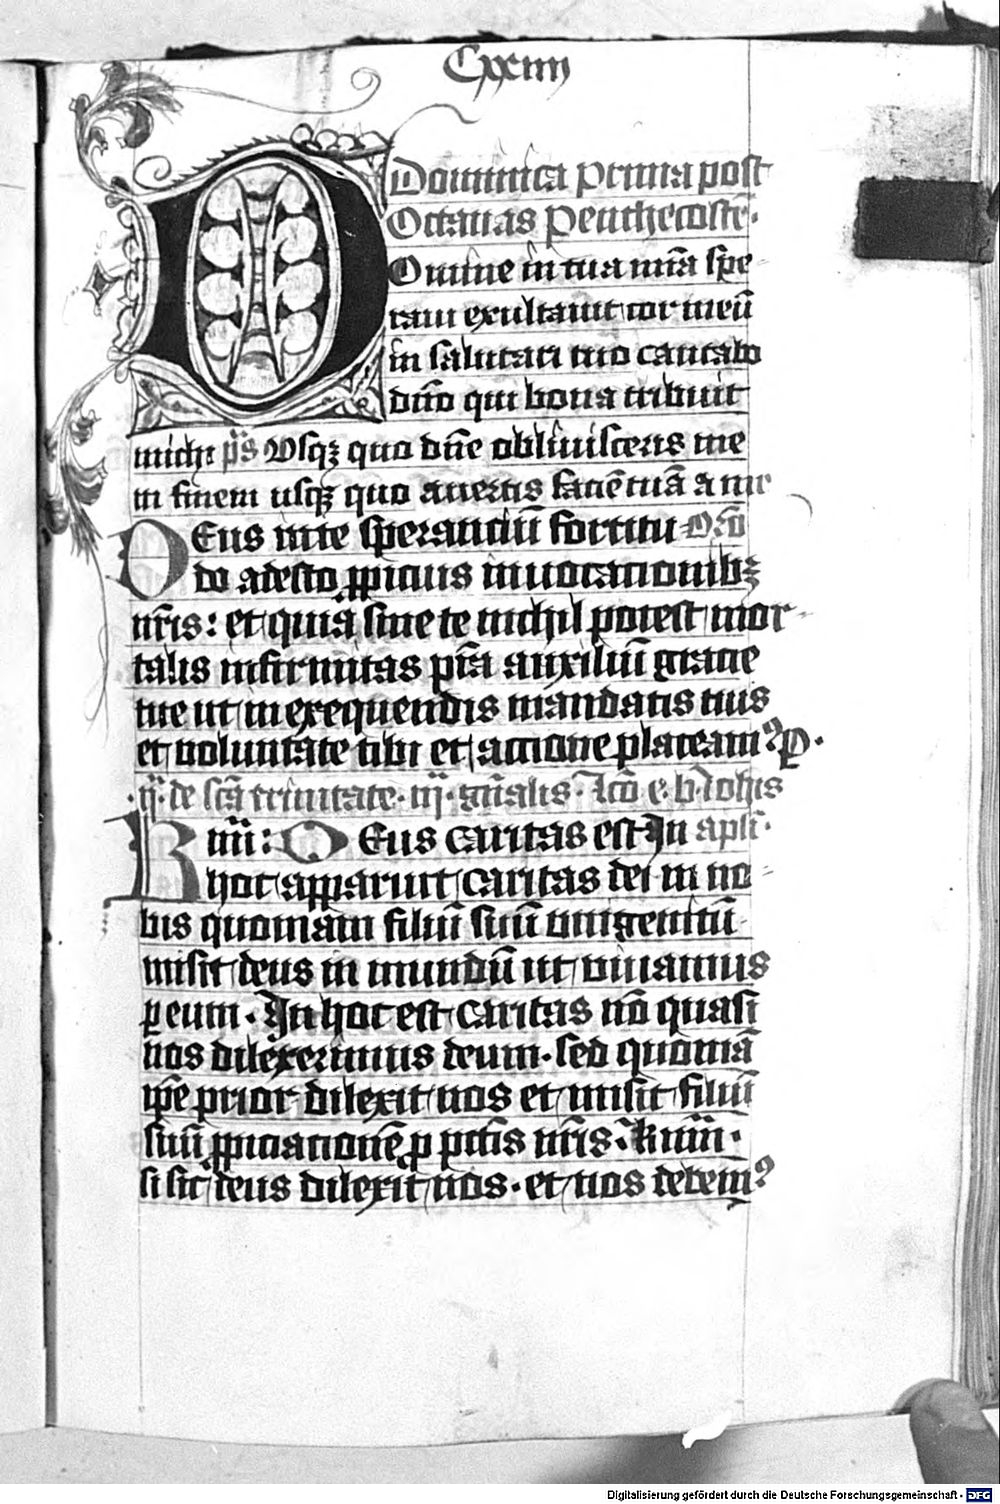 Cxxiiij
Dominica prima post
Octauas Penthecostē·
Omine in tua mīa spe-
raui exultauit cor meū
in salutari tuo cantabo
dn̄o qui bona tribuit
michi p̄s Vsqꝫ quo dn̄e obliuisceris me
in finem usqꝫ quo auertis faciē tuā a me
DEus in te speranciū fortitu- Oro
do adesto ꝓpicius inuocationibꝫ
nr̄is: et quia sine te nichil potest mor-
talis infirmitas p̄ta auxiliū gracie
tue ut in exequendis mandatis tuis
et voluntate tibi et accione placeamꝰ P·
·ij· de sc̄a trinitate· iij· gn̄alis· Lc̄o e· b· Iohis
Rmi: DEus caritas est In apli·
hoc apparuit caritas dei in no-
bis quoniam filiū suū unigenitū
misit deus in mundū ut viuamus
ꝑ eum· In hoc est caritas nō quasi
nos dilexerimus deum· sed quoniā
ip̄e prior dilexit nos et misit filiū
suū ꝓpiciacionē ꝓ pctis nr̄is· kmi·
si sic deus dilexit nos· et nos debemꝰ
Digitalisierung gefördert durch die Deutsche Forschungsgemeinschaft - DFG